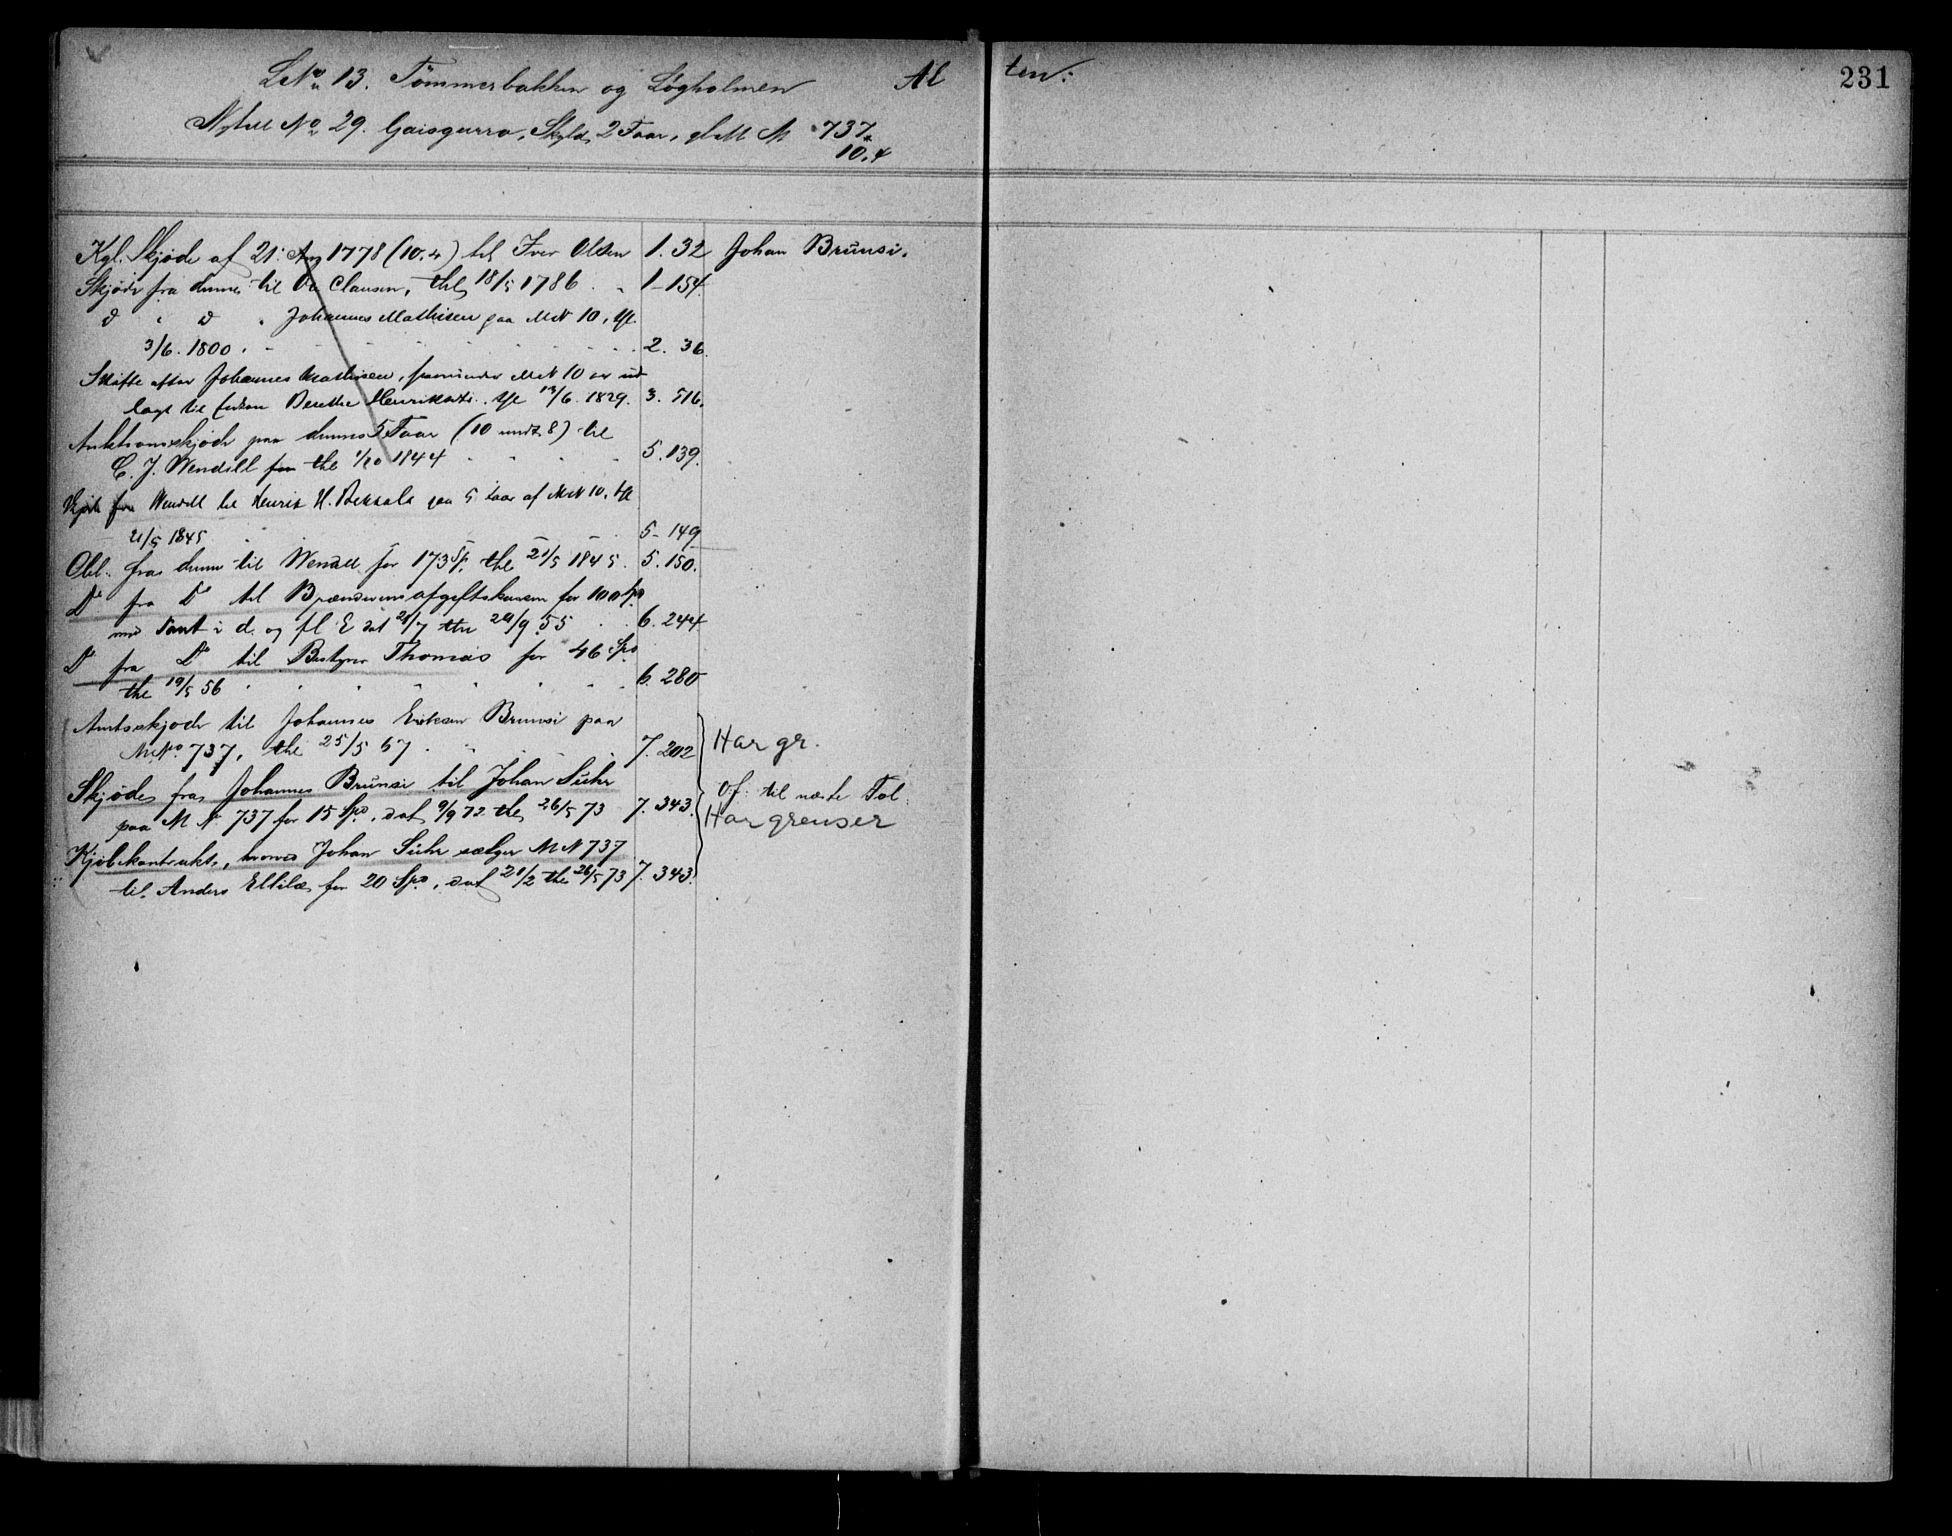 L. No 13. Tömmerbakken og Løgholmen Al ten: 231
Nytill No 29. Gaisgurra, Skyld 2 Faar, gl. M. 737.
10.4
Kgl. Skjøde af 21. Aug 1778 (10.4) til Iver Olsen 1. 32 Johan Brünsi.
Skjøde fra denne til Ole Clausen, thl. 18/5 1786 . . 1-154
d " d " Johannes Mathisen paa M.N 10, thl.
3/6. 1800. 2. 36.
Skifte efter Johannes Mathisen, M.N 10 er ud
lagt til Enken Berethe Henriksd. thl 13/6. 1829. 3. 516.
Auktionsskjøde paa dennes 5 Faar (10 undt. 8) til
C. J. Wendell the 1/10 1844 5.139.
Skjøde fra Wendell til Henrik H. paa 5 Faar af M.N 10. thl
21/5 1845 5-149
Obl. fra denne til Wendell for 173 Sp. the 21/5 1845. 5.150.
Do fra Do til Brændevinsafgiftskassen for 100 Spd
med Pant i d. og fl. E dat 28/7 the 20/9 55 6. 244
Do fra Do til Bestyrer Thomas for 46 Spd
the 19/5 56 6. 280
Amtsskjøde til Johannes Eriksen Brunsi paa
M.No. 737, the 25/5 67. 7. 202 Har gr.
Skjøde fra Johannes Brünsi til Johan Suhr Of: til næste Fol.
paa M N 737 for 15 Spd. dat 9/9 72 the 26/5 73 7. 343. Har grenser
Kjøbekontrakt, hvorved Johan Suhr sælger M N 737
til Anders for 20 Spd, dat 21/2 the 26/5 73 7. 343.